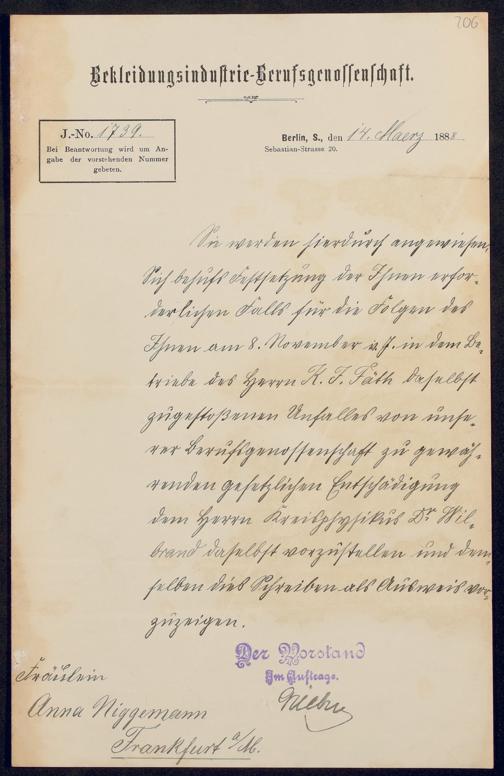 206
Bekleidungsindustrie-Berufsgenossenschaft.
J.-No. 1739.
Bei Beantwortung wird um An-
gabe der vorstehenden Nummer
gebeten.
Berlin, S., den 14. Maerz 1888
Sebastian-Strasse 20.
Sie werden hierdurch angewiesen,
Sich behufs Festsetzung der Ihnen erfor-
derlichen Falls für die Folgen des
Ihnen am 8. November v. J. in dem Be-
triebe des Herrn K. J. Fäth daselbst
zugestoßenen Unfalles von unse-
rer Berufsgenossenschaft zu gewäh-
renden gesetzlichen Entschädigung
dem Herrn Kreisphysikus Dr Wil-
brand daselbst vorzustellen und dem-
selben dies Schreiben als Ausweis vor-
zuzeigen.
Der Vorstand
Im Auftrage.
Fräulein
Anna Niggemann
Frankfurt a/M.